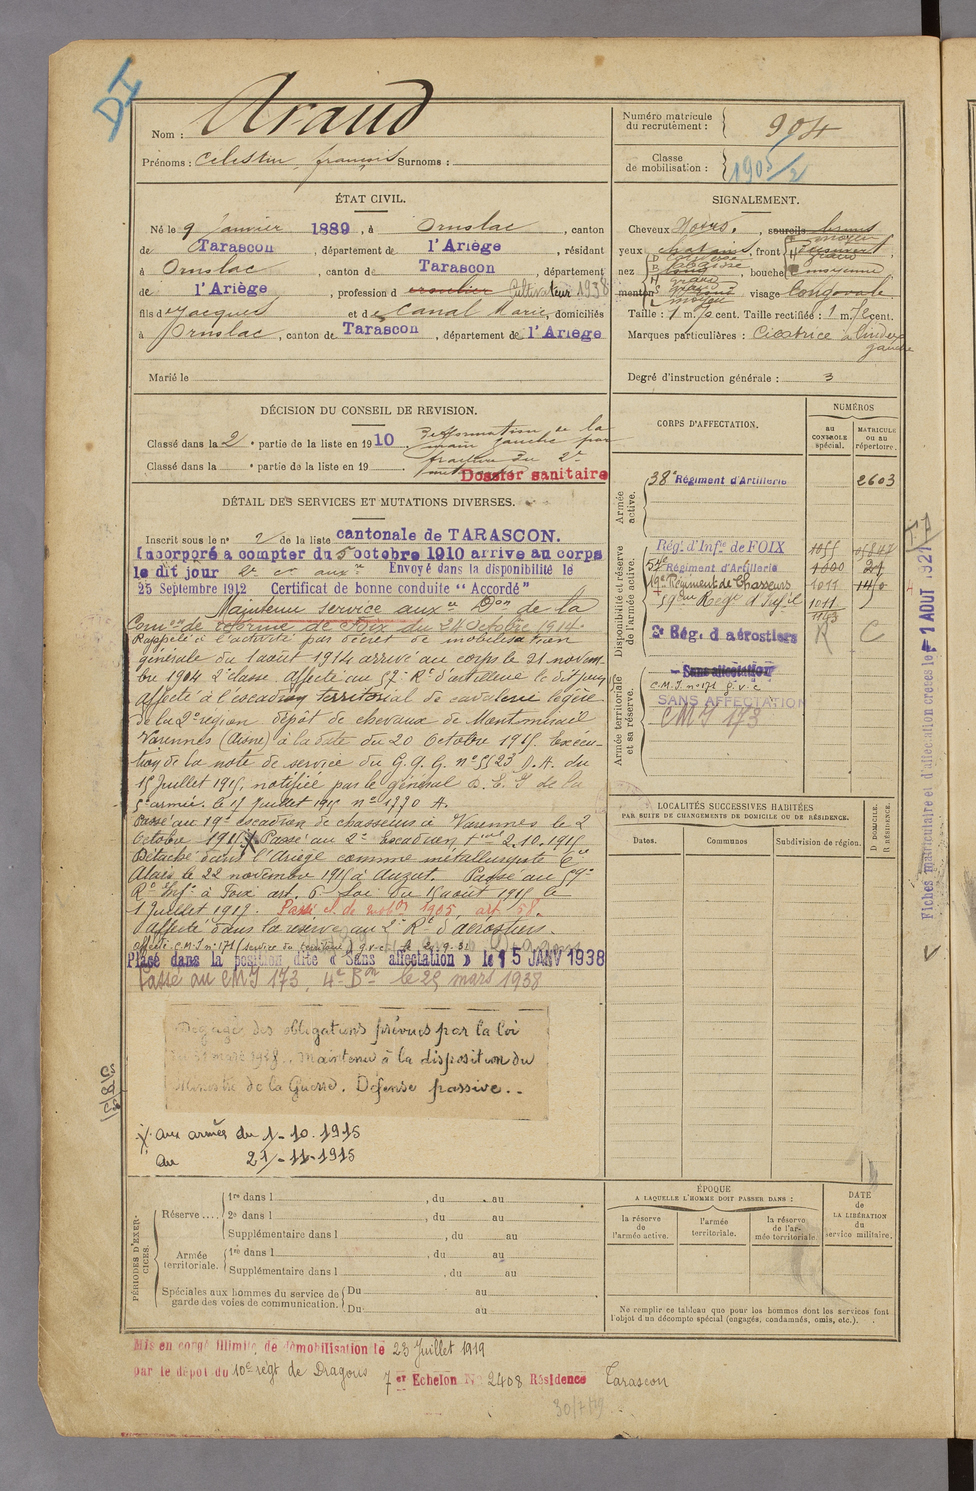 DI
Nom : Araud
Prénoms : Celestin, françois Surnoms :
Numéro matricule du recrutement : 904
Classe de mobilisation : 1905/2
ÉTAT CIVIL.
Né le 9 Janvier 1889, à Ornolac, canton
de Tarascon, département de l'Ariège, résidant
à Ornolac, canton de Tarascon, département
de l'Ariège, profession d Cultivateur 1938
fils de Jacques et de Canal Marie, domiciliés
à Ornolac, canton de Tarascon, département de l'Ariège
Marié le
SIGNALEMENT.
Cheveux Noirs, sourcils bruns
yeux chatains, front moyen
nez, bouche moyenne
menton, visage Long ovale
Taille : 1 m. 70 cent. Taille rectifiée : 1 m. cent.
Marques particulières : Cicatrice à l'index gauche
Degré d'instruction générale : 3
DÉCISION DU CONSEIL DE REVISION.
Classé dans la 2e partie de la liste en 1910. Déformation de la main gauche par fracture du 2e
Classé dans la e partie de la liste en 19
Dossier sanitaire
DÉTAIL DES SERVICES ET MUTATIONS DIVERSES.
Inscrit sous le n° 2 de la liste cantonale de TARASCON.
Incorporé a compter du 5 octobre 1910 arrive au corps
le dit jour 2e cr auxre Envoyé dans la disponibilité le
25 Septembre 1912 Certificat de bonne conduite "Accordé"
Maintenu service auxre Don de la
Comon de réforme de Foix du 24 Octobre 1914.
Rappelé à l'activité par décret de mobilisation
générale du 1 août 1914 arrivé au corps le 21 novem-
bre 1904 2e classe. Affecté au 57e Rt d'artillerie le dit jour
Affecté à l'escadron territorial de cavalerie légère
de la 2e région dépôt de chevaux de Montmirail
Varennes (Aisne) à la date du 20 Octobre 1915. Exécu-
tion de la note de service du G.Q.G. n° 5523 D.A. du
15 Juillet 1915, notifiée par le général D.E.S de la
5e armée. le 17 Juillet 1915 n° 1770 A.
Passé au 19e escadron de chasseurs à Varennes le 2
Octobre 1915. X Passé au 2e Escadron 2.10.1915
Détaché dans l'Ariège comme métallurgiste Cie
Alais le 22 novembre 1915 à Auzat. Passé au 59e
Rt Infie à Foix art. 6 Loi du 17 août 1915 le
1 Juillet 1917. Passé cl. de mobon 1905, art 58.
Affecté dans la réserve au 2e Rt d'aérostiers.
Affecté C.M.I n° 171 (service du territoire) g.v.c.
Placé dans la position dite « Sans affectation » le 15 JANV 1938
Passé au CMI 173, 4e Bon le 25 mars 1938
Dégagé des obligations prévues par la loi
du 31 mars 1928. Maintenu à la disposition du
Ministre de la Guerre. Défense passive..
X aux armées du 1-10.1915
au 21-11-1915
CORPS D'AFFECTATION.
NUMÉROS
au CONTROLE spécial.
MATRICULE ou au répertoire.
Armée active.
38e Régiment d'Artillerie 2603
Disponibilité et réserve de l'armée active.
Rég. d'Infie de FOIX 1055
57e Régiment d'Artillerie 1600 21
19e Régiment de Chasseurs 1011 140
59eme Regt d'Infie 1011
1143
2e Rég. d'aérostiers C
Armée territoriale et sa réserve.
Sans affectation
C.M.I. n° 171 g.v.c
SANS AFFECTATION
CMI 173
LOCALITÉS SUCCESSIVES HABITÉES
PAR SUITE DE CHANGEMENTS DE DOMICILE OU DE RÉSIDENCE.
D DOMICILE. R RÉSIDENCE.
Dates. Communes Subdivision de région.
Fiches matriculaire et d'affectation créées le 1 AOUT 1921
PÉRIODES D'EXERCICES.
Réserve....
1re dans l , du au
2e dans l , du au
Supplémentaire dans l , du au
Armée territoriale.
1re dans l , du au
Supplémentaire dans l , du au
Spéciales aux hommes du service de garde des voies de communication.
Du au
Du au
ÉPOQUE
A LAQUELLE L'HOMME DOIT PASSER DANS :
la réserve de l'armée active.
l'armée territoriale.
la réserve de l'armée territoriale.
DATE de LA LIBÉRATION du service militaire.
Ne remplir ce tableau que pour les hommes dont les services font
l'objet d'un décompte spécial (engagés, condamnés, omis, etc.).
Mis en congé illimité de démobilisation le 23 Juillet 1919
par le dépôt du 10e régt de Dragons 7er Echelon N° 2408 Résidence Tarascon
30/7/19